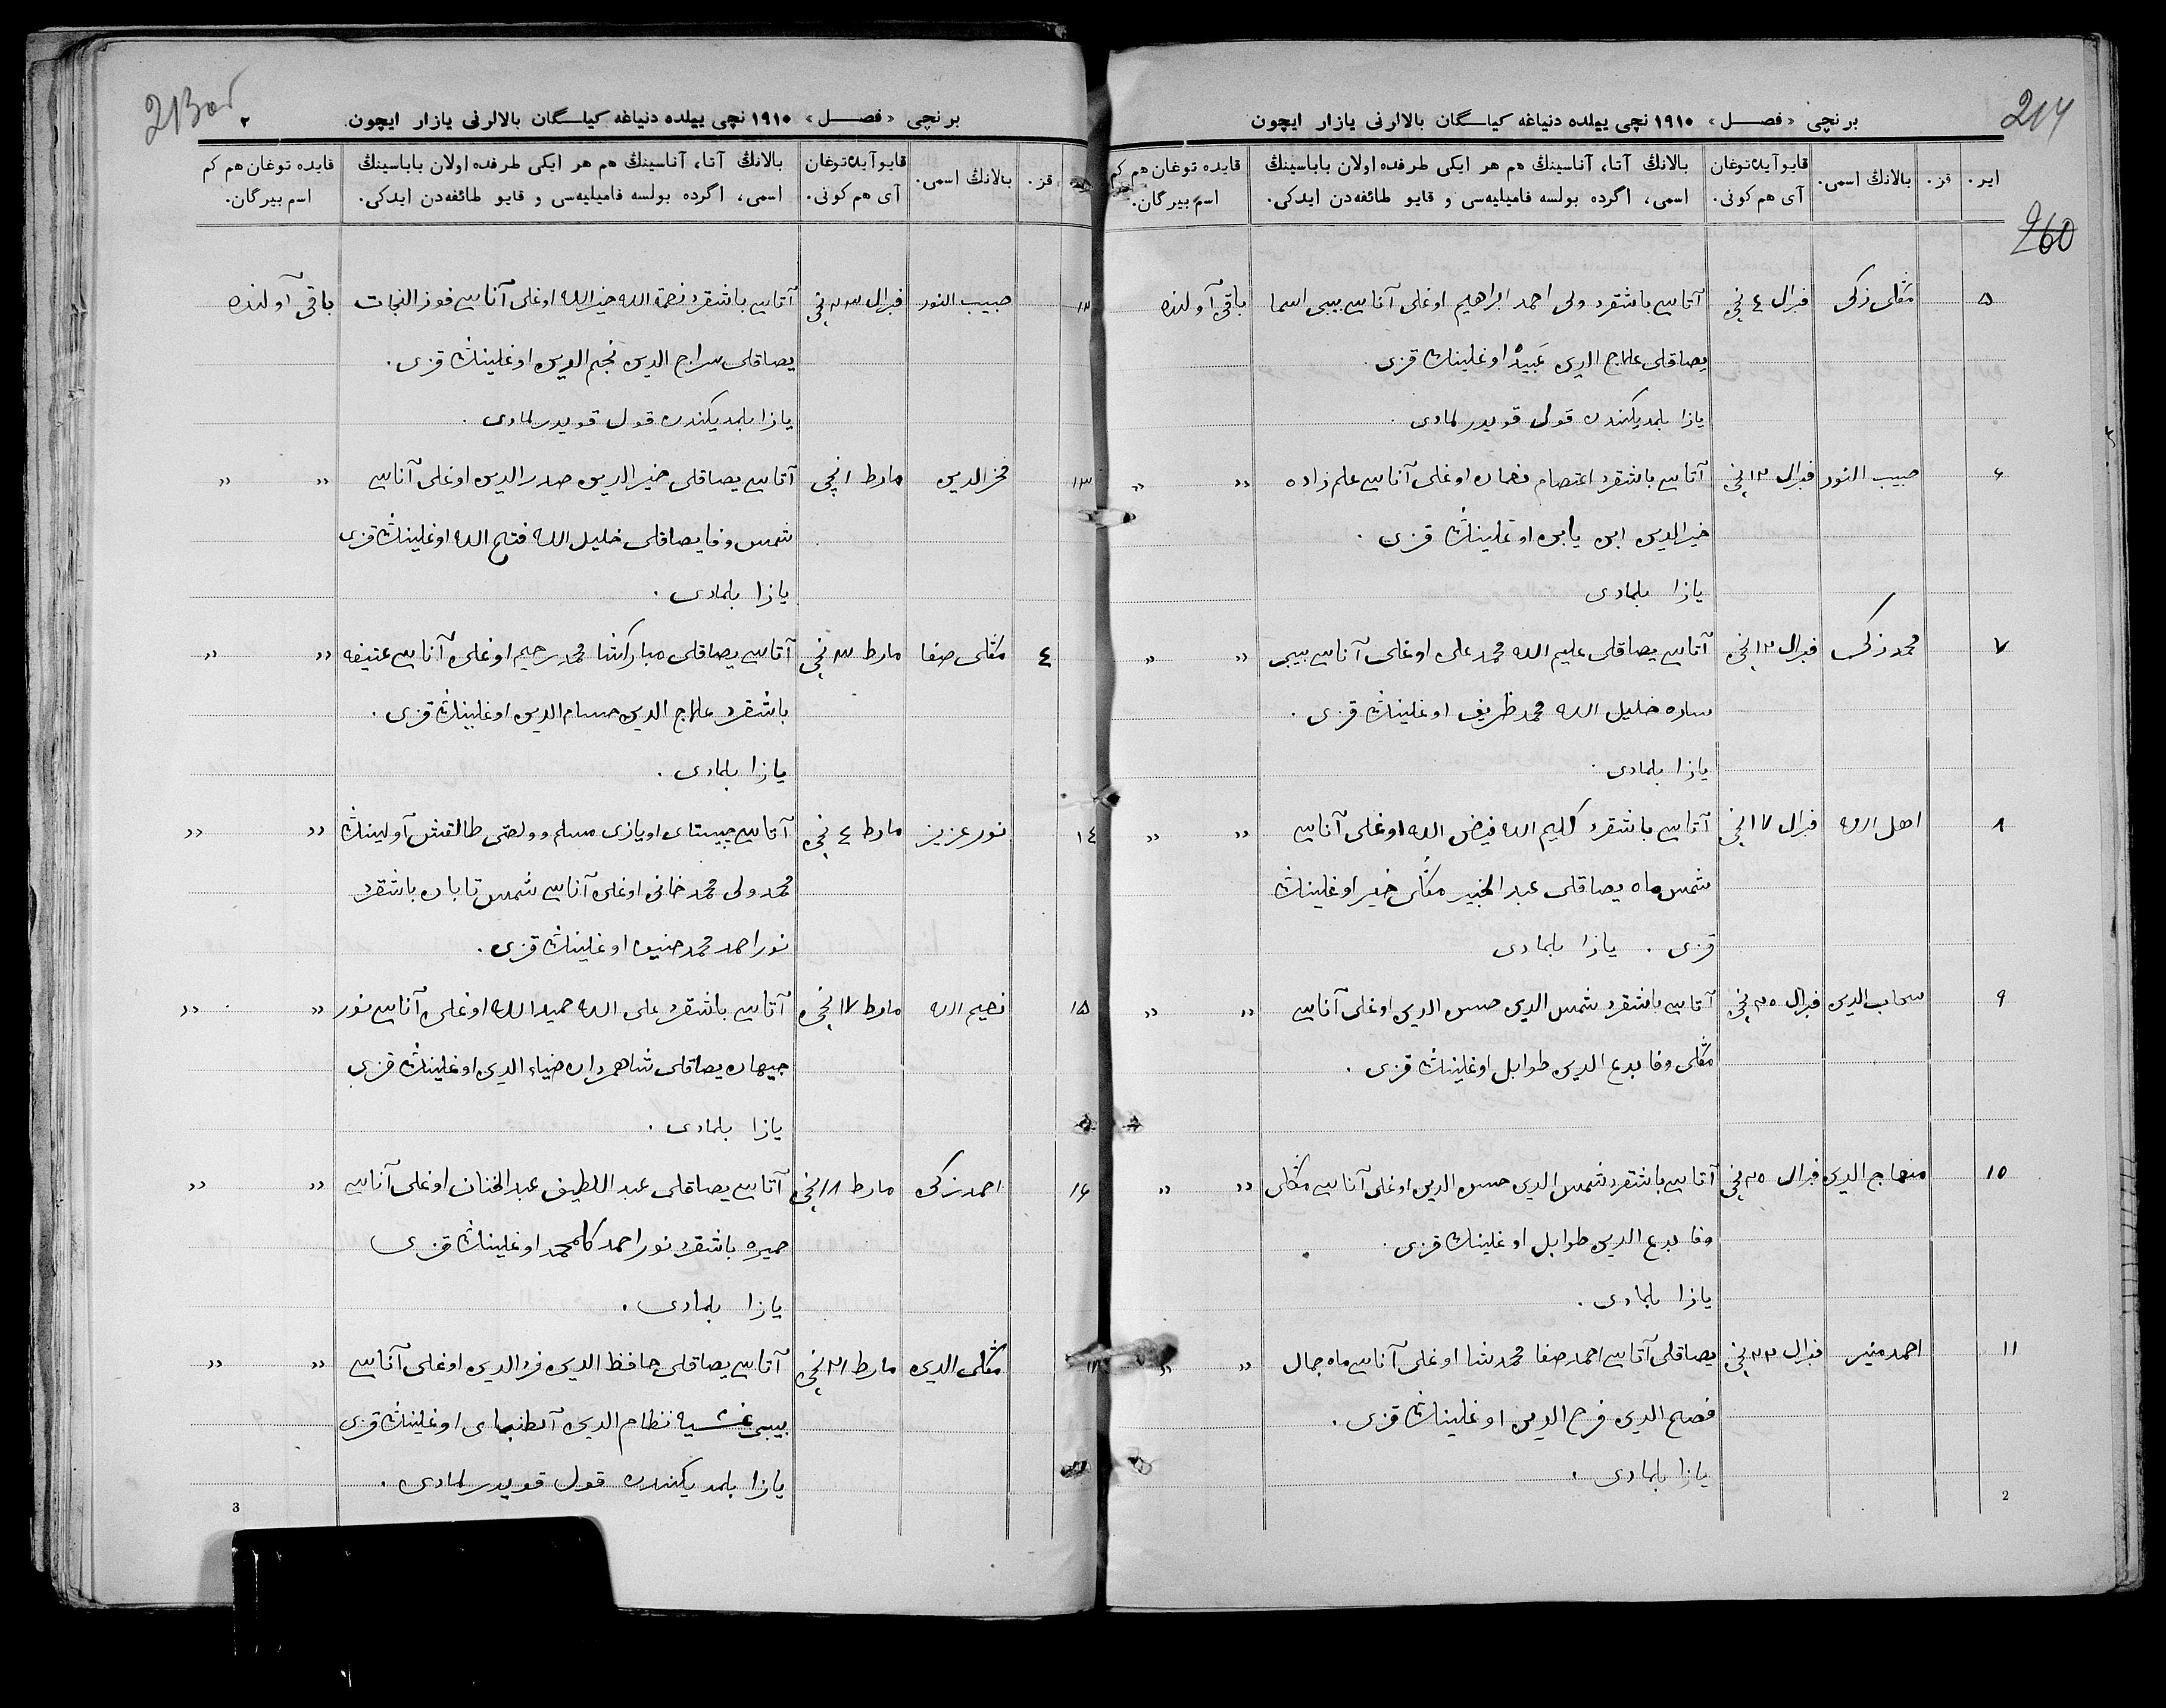 214
260
برنچی «فصل» ١٩١٠ نچی ییلده دنیاغه کیلسگان بالالرنی یازار ایچون
ایر. قز. بالانڭ اسمی. قایو آیده توغان آی هم کونی. بالانڭ آتا، آناسینڭ هم هر ایکی طرفده اولان باباسینڭ اسمی، اگرده بولسه فامیلیه‌سی و قایو طائفه‌دن ایدکی. قایده توغان هم کم اسم بیرگان.
٥ متکلی زکی فبرال ٤ نچی آتاسی باشقرد ولی احمد ابراهیم اوغلی آناسی بیبی اسما باقی آولنده
یصاقلی علاج الدین عبید اوغلینڭ قزی.
یازا بلمدیکندن قول قویدرلمادی.
٦ حبیب النور فبرال ١٣ نچی آتاسی باشقرد اعتصام نعمان اوغلی آناسی علم زاده " "
خیرالدین ابن یامن اوغلینڭ قزی.
یازا بلمادی
٧ محمد زکی فبرال ١٣ نچی آتاسی یصاقلی علیم الله محمد علی اوغلی آناسی بیبی " "
ساره خلیل الله محمد ظریف اوغلینڭ قزی.
یازا بلمادی.
٨ اهل الله فبرال ١٧ نچی آتاسی باشقرد کلیم الله فیض الله اوغلی آناسی " "
شمس ماه یصاقلی عبد الخبیر متکلی خیر اوغلینڭ
قزی. یازا بلمادی
٩ سحاب الدین فبرال ٢٥ نچی آتاسی باشقرد شمس الدین حسن الدین اوغلی آناسی " "
متکلی وفا بدع الدین طوابل اوغلینڭ قزی.
١٠ منهاج الدین فبرال ٢٥ نچی آتاسی باشقرد شمس الدین حسن الدین اوغلی آناسی متکلی " "
وفا بدع الدین طوابل اوغلینڭ قزی.
یازا بلمادی.
١١ احمد منیر فبرال ٢٣ نچی یصاقلی آتاسی احمد صفا محمد شا اوغلی آناسی ماه جمال " "
فصح الدین فرح الدین اوغلینڭ قزی.
یازا بلمادی.
2
213 об
٢
برنچی «فصل» ١٩١٠ نچی ییلده دنیاغه کیلسگان بالالرنی یازار ایچون.
قز. بالانڭ اسمی. قایو آیده توغان آی هم کونی. بالانڭ آتا، آناسینڭ هم هر ایکی طرفده اولان باباسینڭ اسمی، اگرده بولسه فامیلیه‌سی و قایو طائفه‌دن ایدکی. قایده توغان هم کم اسم بیرگان.
١٢ حبیب النور فبرال ٢٣ نچی آتاسی باشقرد نعمة الله خیرالله اوغلی آناسی فوز النجات باقی آولنده
یصاقلی سراج الدین نجم الدین اوغلینڭ قزی.
یازا بلمدیکندن قول قویدرلمادی.
١٣ فخرالدین مارط ١ نچی آتاسی یصاقلی خیر الدین صدر الدین اوغلی آناسی " "
شمس وفا یصاقلی خلیل الله فتح الله اوغلینڭ قزی
یازا بلمادی.
٤ متکلی صفا مارط ٣ نچی آتاسی یصاقلی مبارکشا محمد رحیم اوغلی آناسی عتیفه " "
باشقرد علاج الدین حسام الدین اوغلینڭ قزی.
یازا بلمادی.
١٤ نور عزیز مارط ٤ نچی آتاسی چیستای اویازی مسلم وولصتی طالقش آولینڭ " "
محمد ولی محمد خانی اوغلی آناسی شمس تابان باشقرد
نور احمد محمد حنیف اوغلینڭ قزی.
١٥ نعیم الله مارط ١٧ نچی آتاسی باشقرد علی الله حمید الله اوغلی آناسی نور " "
جیهان یصاقلی شاهمردان ضیاء الدین اوغلینڭ قزی
یازا بلمادی.
١٦ احمد زکی مارط ١٨ نچی آتاسی یصاقلی عبد اللطیف عبد الحنان اوغلی آناسی " "
حمیره باشقرد نور احمد کلمحمد اوغلینڭ قزی
یازا بلمادی.
١٧ متکلی الدین مارط ٢١ نچی آتاسی یصاقلی حافظ الدین فرد الدین اوغلی آناسی " "
بیبی نظام الدین اوغلینڭ قزی
یازا بلمدیکندن قول قویدرلمادی.
3